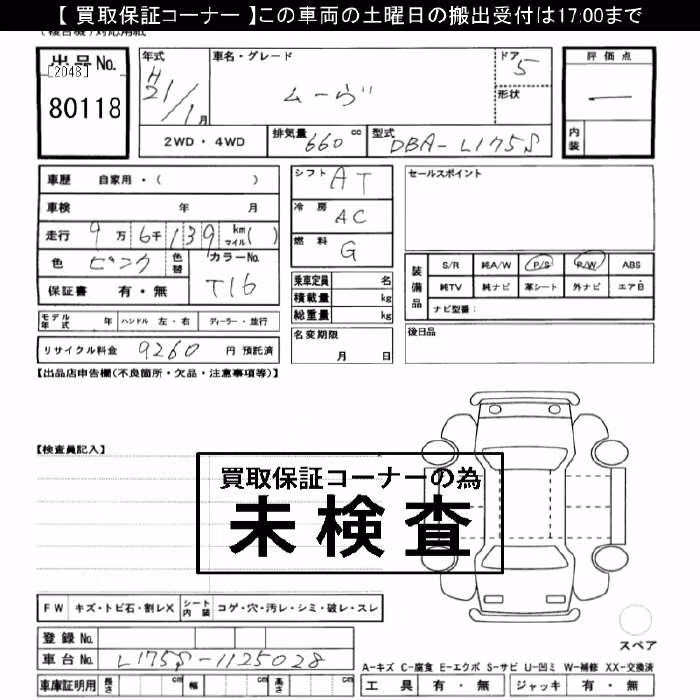 【 買取保証コーナー 】この車両の土曜日の搬出受付は17:00まで
出品No.
[2048]
80118
年式
H21/1月
車名・グレード
ムーヴ
ドア
5
形状
評価点
内装
2WD・4WD
排気量 660 cc
型式 DBA-L175S
車歴 自家用・( )
車検 年 月
走行 9万6千139 km マイル( )
色 ピンク
色替
カラーNo.
T16
保証書 有・無
シフト AT
冷房 AC
燃料 G
セールスポイント
乗車定員 名
積載量 kg
総重量 kg
装備品
S/R 純A/W P/S P/W ABS
純TV 純ナビ 革シート 外ナビ エアB
ナビ型番:
モデル年式 年 ハンドル 左・右 ディーラー・並行
名変期限
月 日
後日品
リサイクル料金 9260 円 預託済
【出品店申告欄(不良箇所・欠品・注意事項等)】
【検査員記入】
買取保証コーナーの為
未検査
FW キズ・トビ石・割レX シート内装 コゲ・穴・汚レ・シミ・破レ・スレ
登録No.
車台No. L175S-1125028
車庫証明用 長さ cm 幅 cm 高さ cm
スペア
A-キズ C-腐食 E-エクボ S-サビ U-凹ミ W-補修 XX-交換済
工具 有・無 ジャッキ 有・無